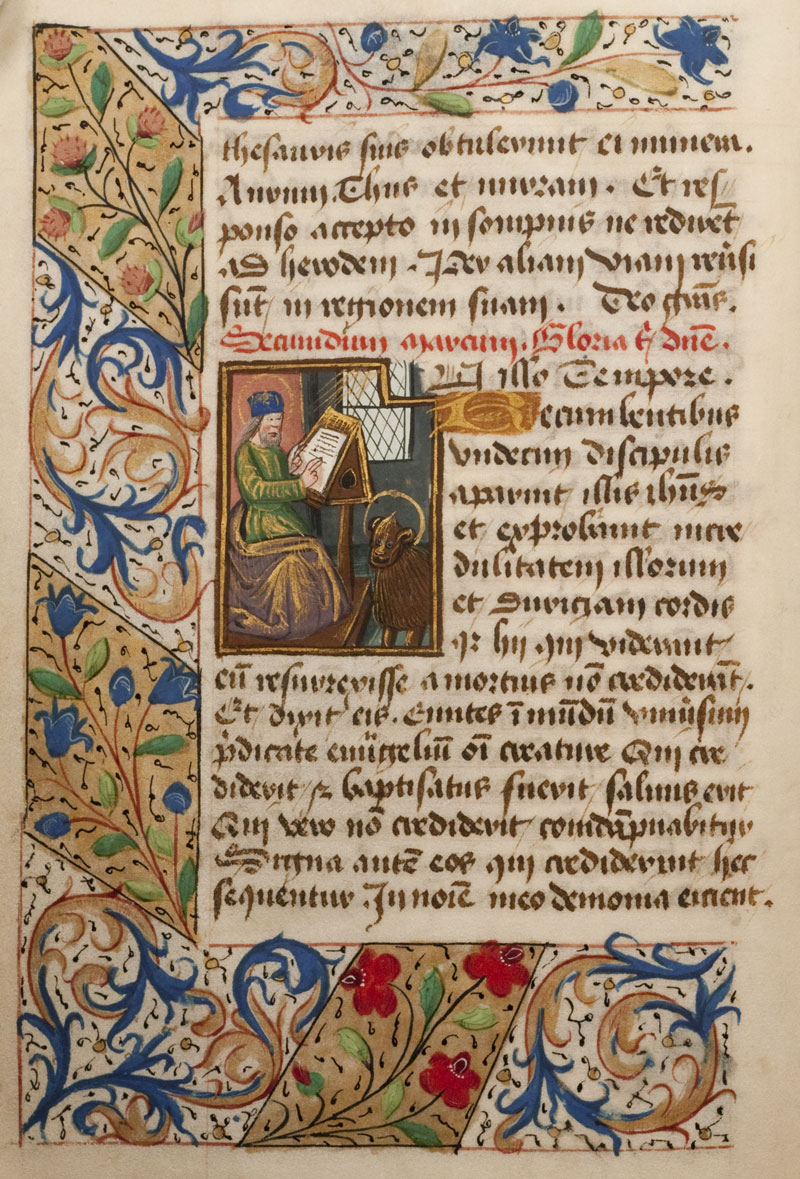 thesauris suis obtulerunt ei munera.
Aurum, Thus et mirram. Et res-
ponso accepto in sompnis ne rediret
ad herodem. Per aliam viam reūsi
sūt in regionem suam. Deo grās.
Secundum marcum. Gloria t̄ dnē.
In illo Tempore.
Recumbentibus
undecim discipulis
aparuit illis ihūs
et exprobauit incre
dulitatem illorum
et duriciam cordis
qr hii qui viderant
eū resurrexisse a mortuis nō crediderāt.
Et dixit eis. Euntes ī mūdū vniūsum
p̄dicate euāgeliū oī creature Qui cre
diderit et baptisatus fuerit saluus erit
Qui vero nō crediderit condāpnabitur
Signa autē eos qui crediderint hec
sequentur. In noīe meo demonia eicient.